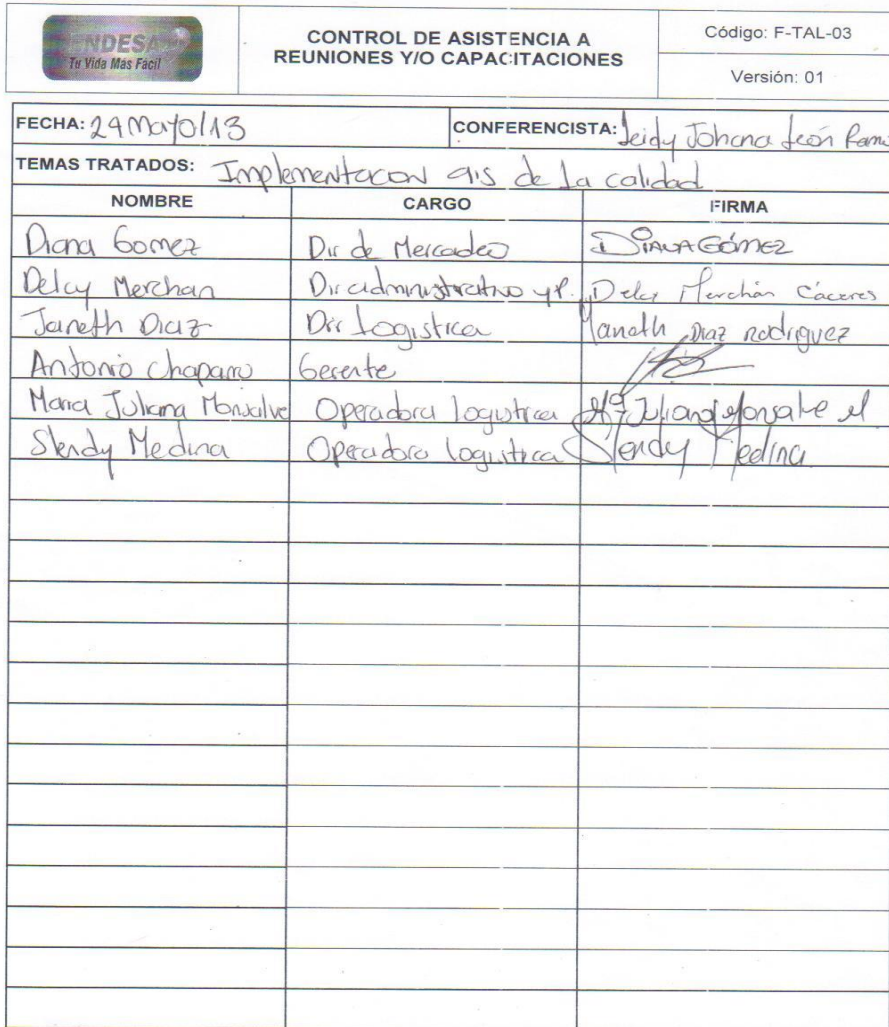 ENDESA
Tu Vida Mas Facil
CONTROL DE ASISTENCIA A
REUNIONES Y/O CAPACITACIONES
Código: F-TAL-03
Versión: 01
FECHA: 24 Mayo/13 CONFERENCISTA: Leidy Johana León Ram
TEMAS TRATADOS: Implementacion de la calidad
NOMBRE CARGO FIRMA
Diana Gomez Dir de Mercadeo DIANA GÓMEZ
Delcy Merchan Dir administrativo y P. Delcy Merchán Cáceres
Janeth Diaz Dir Logistica Yaneth Diaz Rodriguez
Antonio Chaparro Gerente
Maria Juliana Monsalve Operadora logistica Mª Juliana Monsalve M
Slendy Medina Operadora logistica Slendy Medina